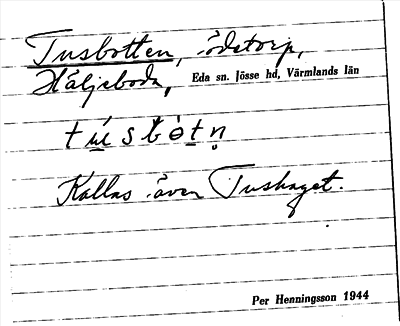 Tusbotten, ödetorp,
Häljeboda, Eda sn. Jösse hd, Värmlands län
tu̲sbo̲tṇ
Kallas även Tushaget.
Per Henningsson 1944